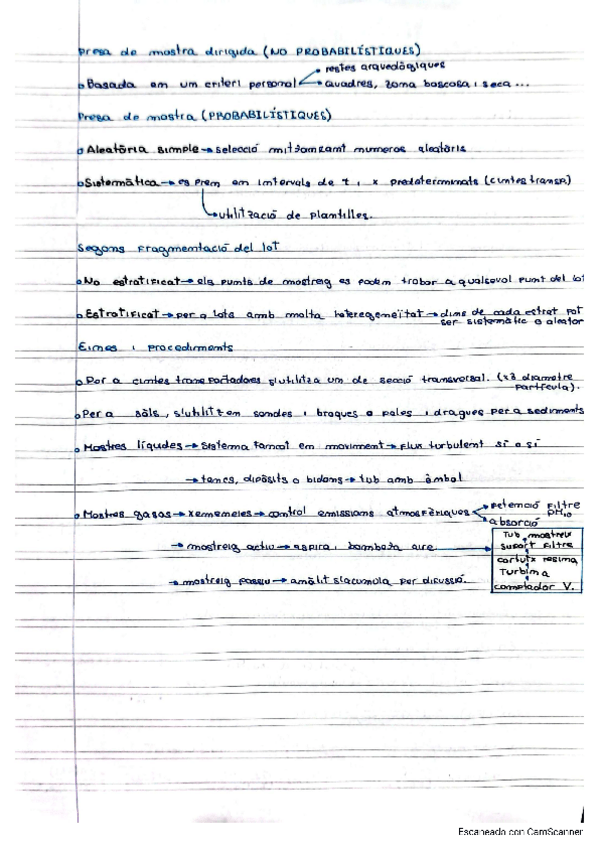 Presa de mostra dirigida (NO PROBABILÍSTIQUES)
• Basada en un criteri personal → restes arqueològiques
→ Quadres, zona boscosa i seca ...
Presa de mostra (PROBABILÍSTIQUES)
• Aleatòria simple → selecció mitjançant numeros aleatòris
• Sistemàtica → es pren en intervals de t i x predeterminats (cintes transp)
↳ utilització de plantilles.
Segons fragmentació del lot
• No estratificat → els punts de mostreig es poden trobar a qualsevol punt del lot
• Estratificat → per a lots amb molta heterogeneïtat → dins de cada estrat pot
ser sistemàtic o aleator
Eines i procediments
• Per a cintes transportadores s'utilitza un de secció transversal. (x3 diametre
partícula).
• Per a sòls, s'utilitzen sondes i broques o pales i dragues per a sediments
• Mostres líqudes → Sistema tancat en moviment → flux turbulent sí o sí
→ tancs, dipòsits o bidons → tub amb èmbol
• Mostres gasos → xemeneies → control emissions atmosfèriques → retenció filtre
PM10
→ absorció
→ mostreig actiu → aspira i bombeja aire →
Tub mostreig
Suport filtre
cartutx resina
Turbina
comptador V.
→ mostreig passiu → anàlit s'acumula per difusió.
Escaneado con CamScanner